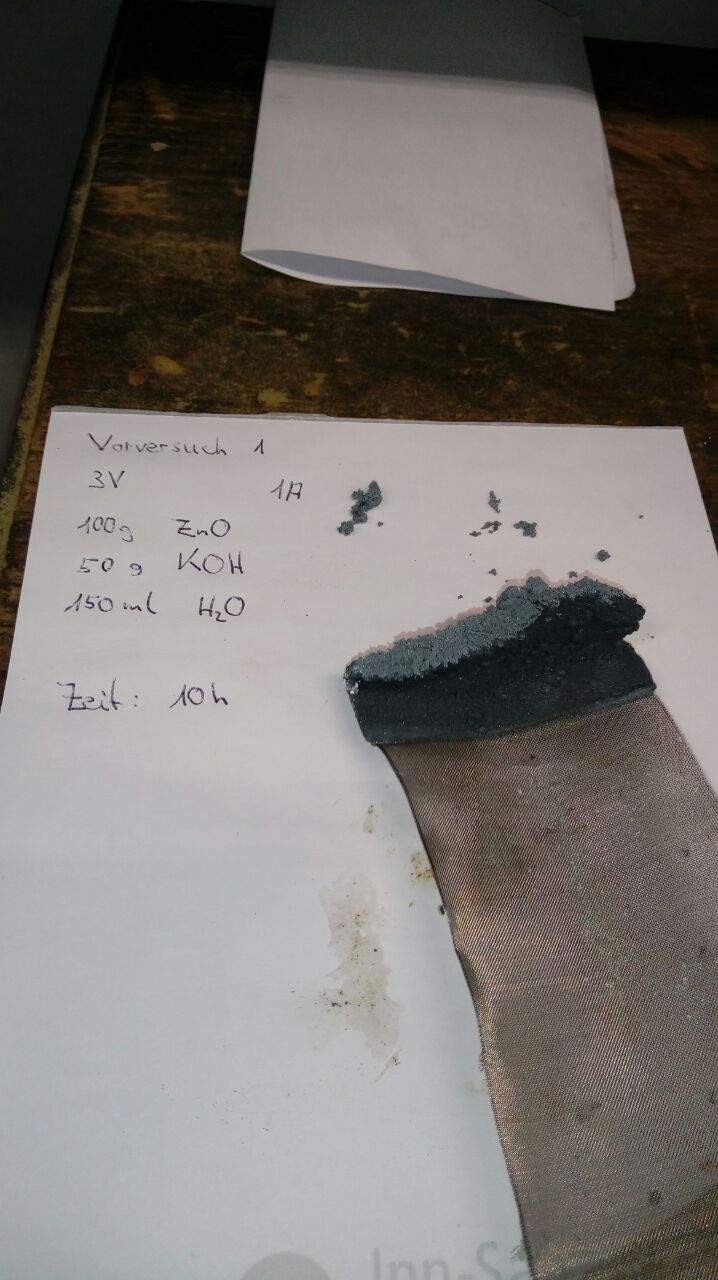 Vorversuch 1
3V 1A
100g ZnO
50 g KOH
150 ml H₂O
Zeit: 10h